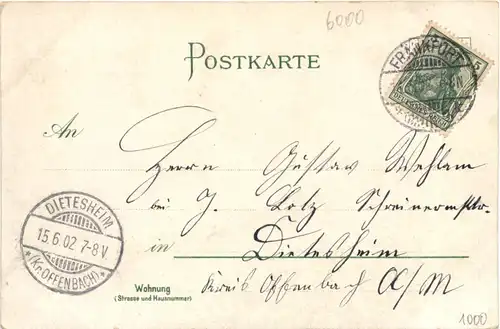 6000
POSTKARTE
FRANKFURT
5
An
Herrn Gustav Wehlam
bei J. Lotz Schreinermstr.
in Dietesheim
Kreis Offenbach A/M
DIETESHEIM
15.6.02 7-8V.
*(Kr. OFFENBACH)*
Wohnung
(Strasse und Hausnummer)
1000